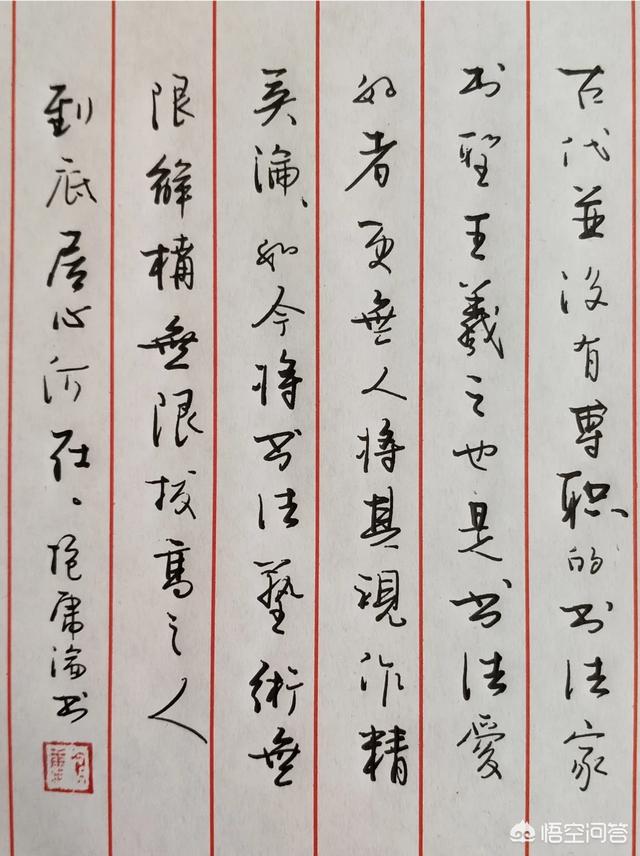 古代並没有專职的书法家
书聖王羲之也是书法愛
好者更無人将其視作精
英論、如今将书法藝術無
限解構無限拔高之人
到底居心何在。书
悟空问答